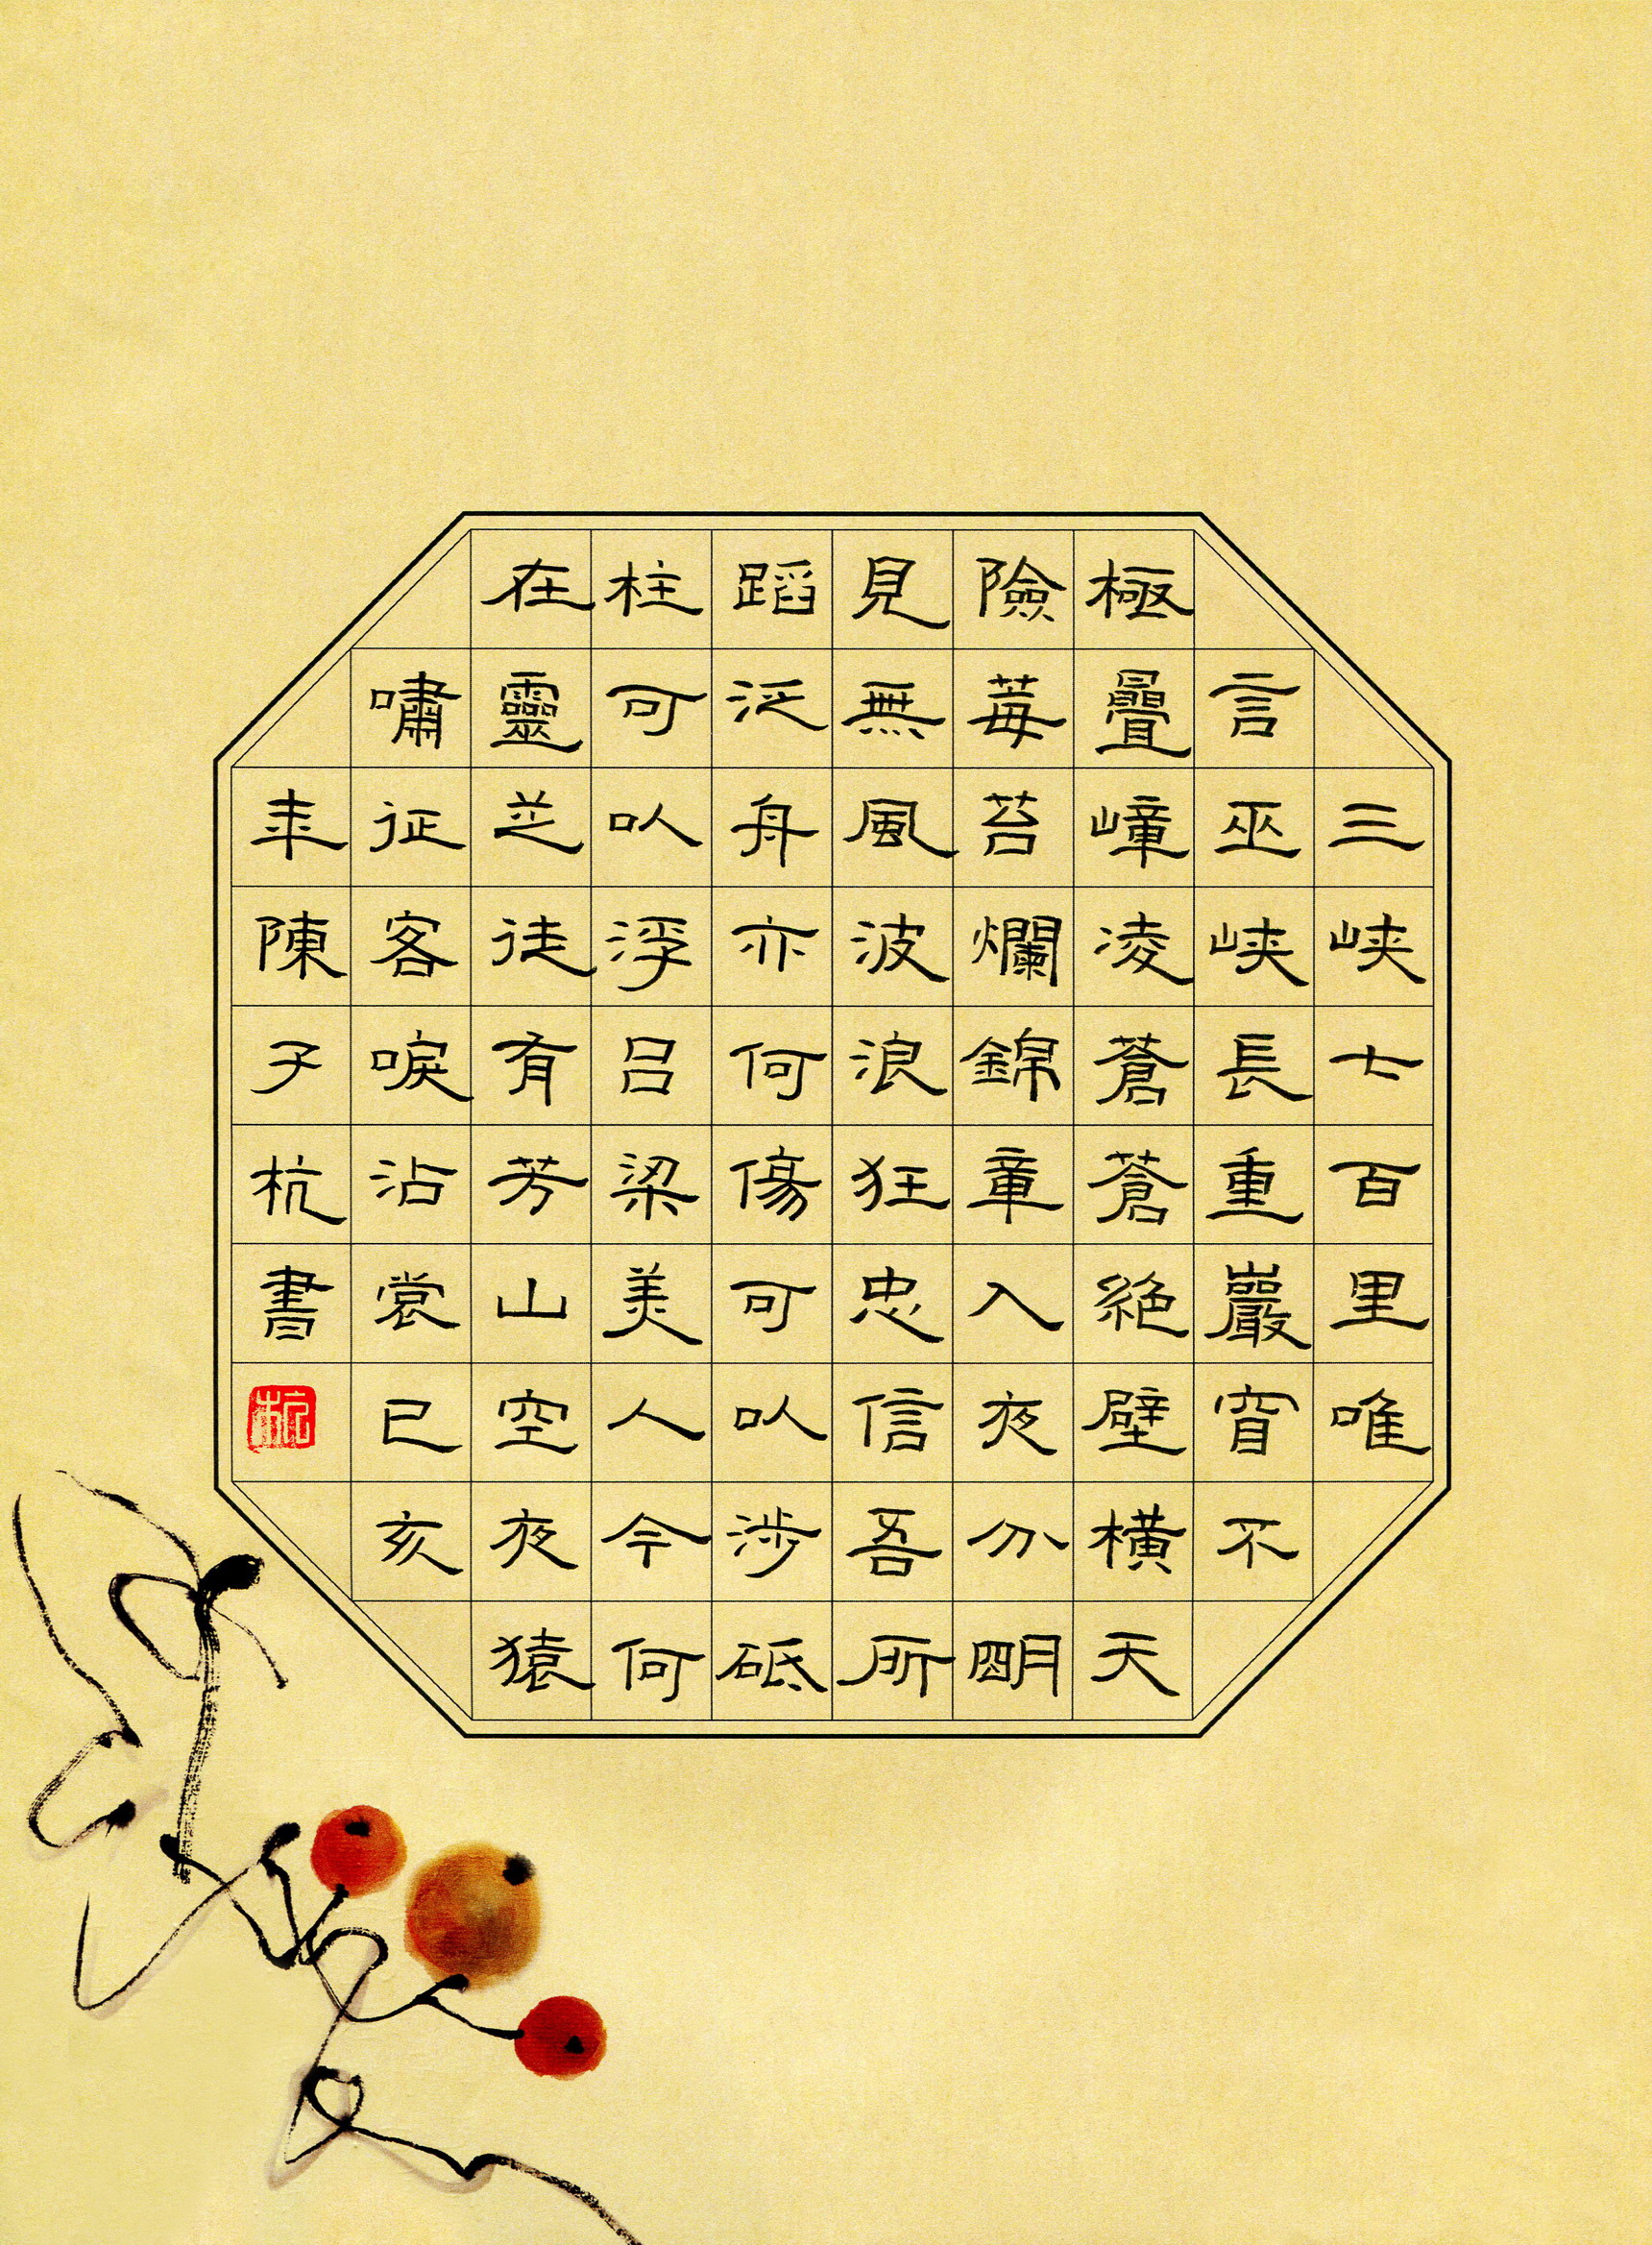 三峡七百里唯
言巫峡長重巖窅不
極疊嶂凌蒼蒼絶壁橫天
險莓苔爛錦章入夜分明
見無風波浪狂忠信吾所
蹈泛舟亦何傷可以涉砥
柱可以浮呂梁美人今何
在靈芝徒有芳山空夜猿
嘯征客唳沾裳已亥
年陳子杭書
杭